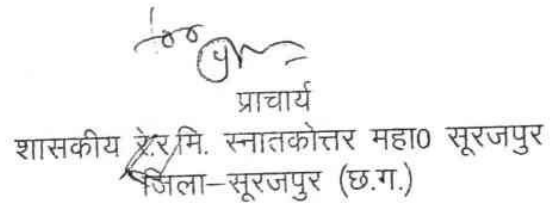 प्राचार्य
शासकीय रे.र.मि. स्नातकोत्तर महा0 सूरजपुर
जिला-सूरजपुर (छ.ग.)